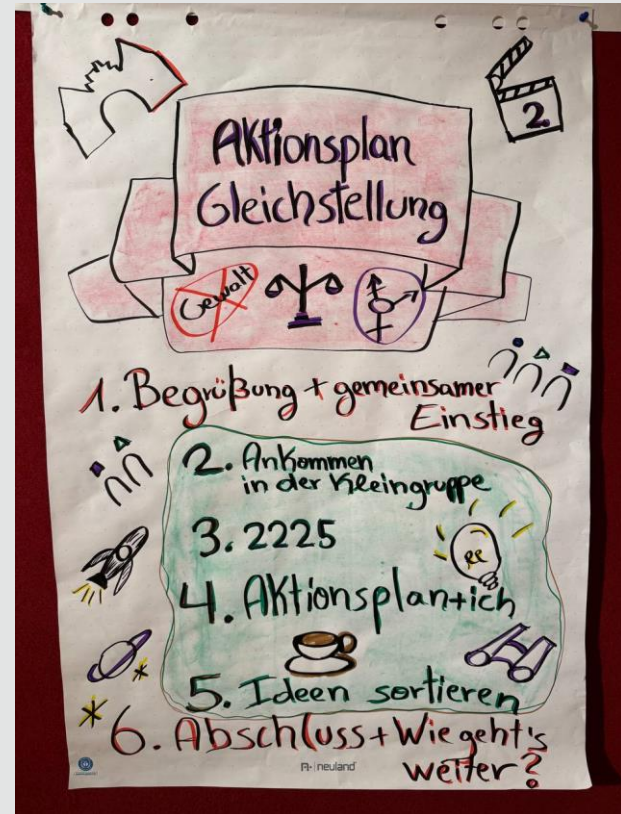 2.
Aktionsplan
Gleichstellung
Gewalt
1. Begrüßung + gemeinsamer
Einstieg
2. Ankommen
in der Kleingruppe
3. 2225
4. Aktionsplan+ich
5. Ideen sortieren
6. Abschluss + Wie geht's
weiter?
neuland